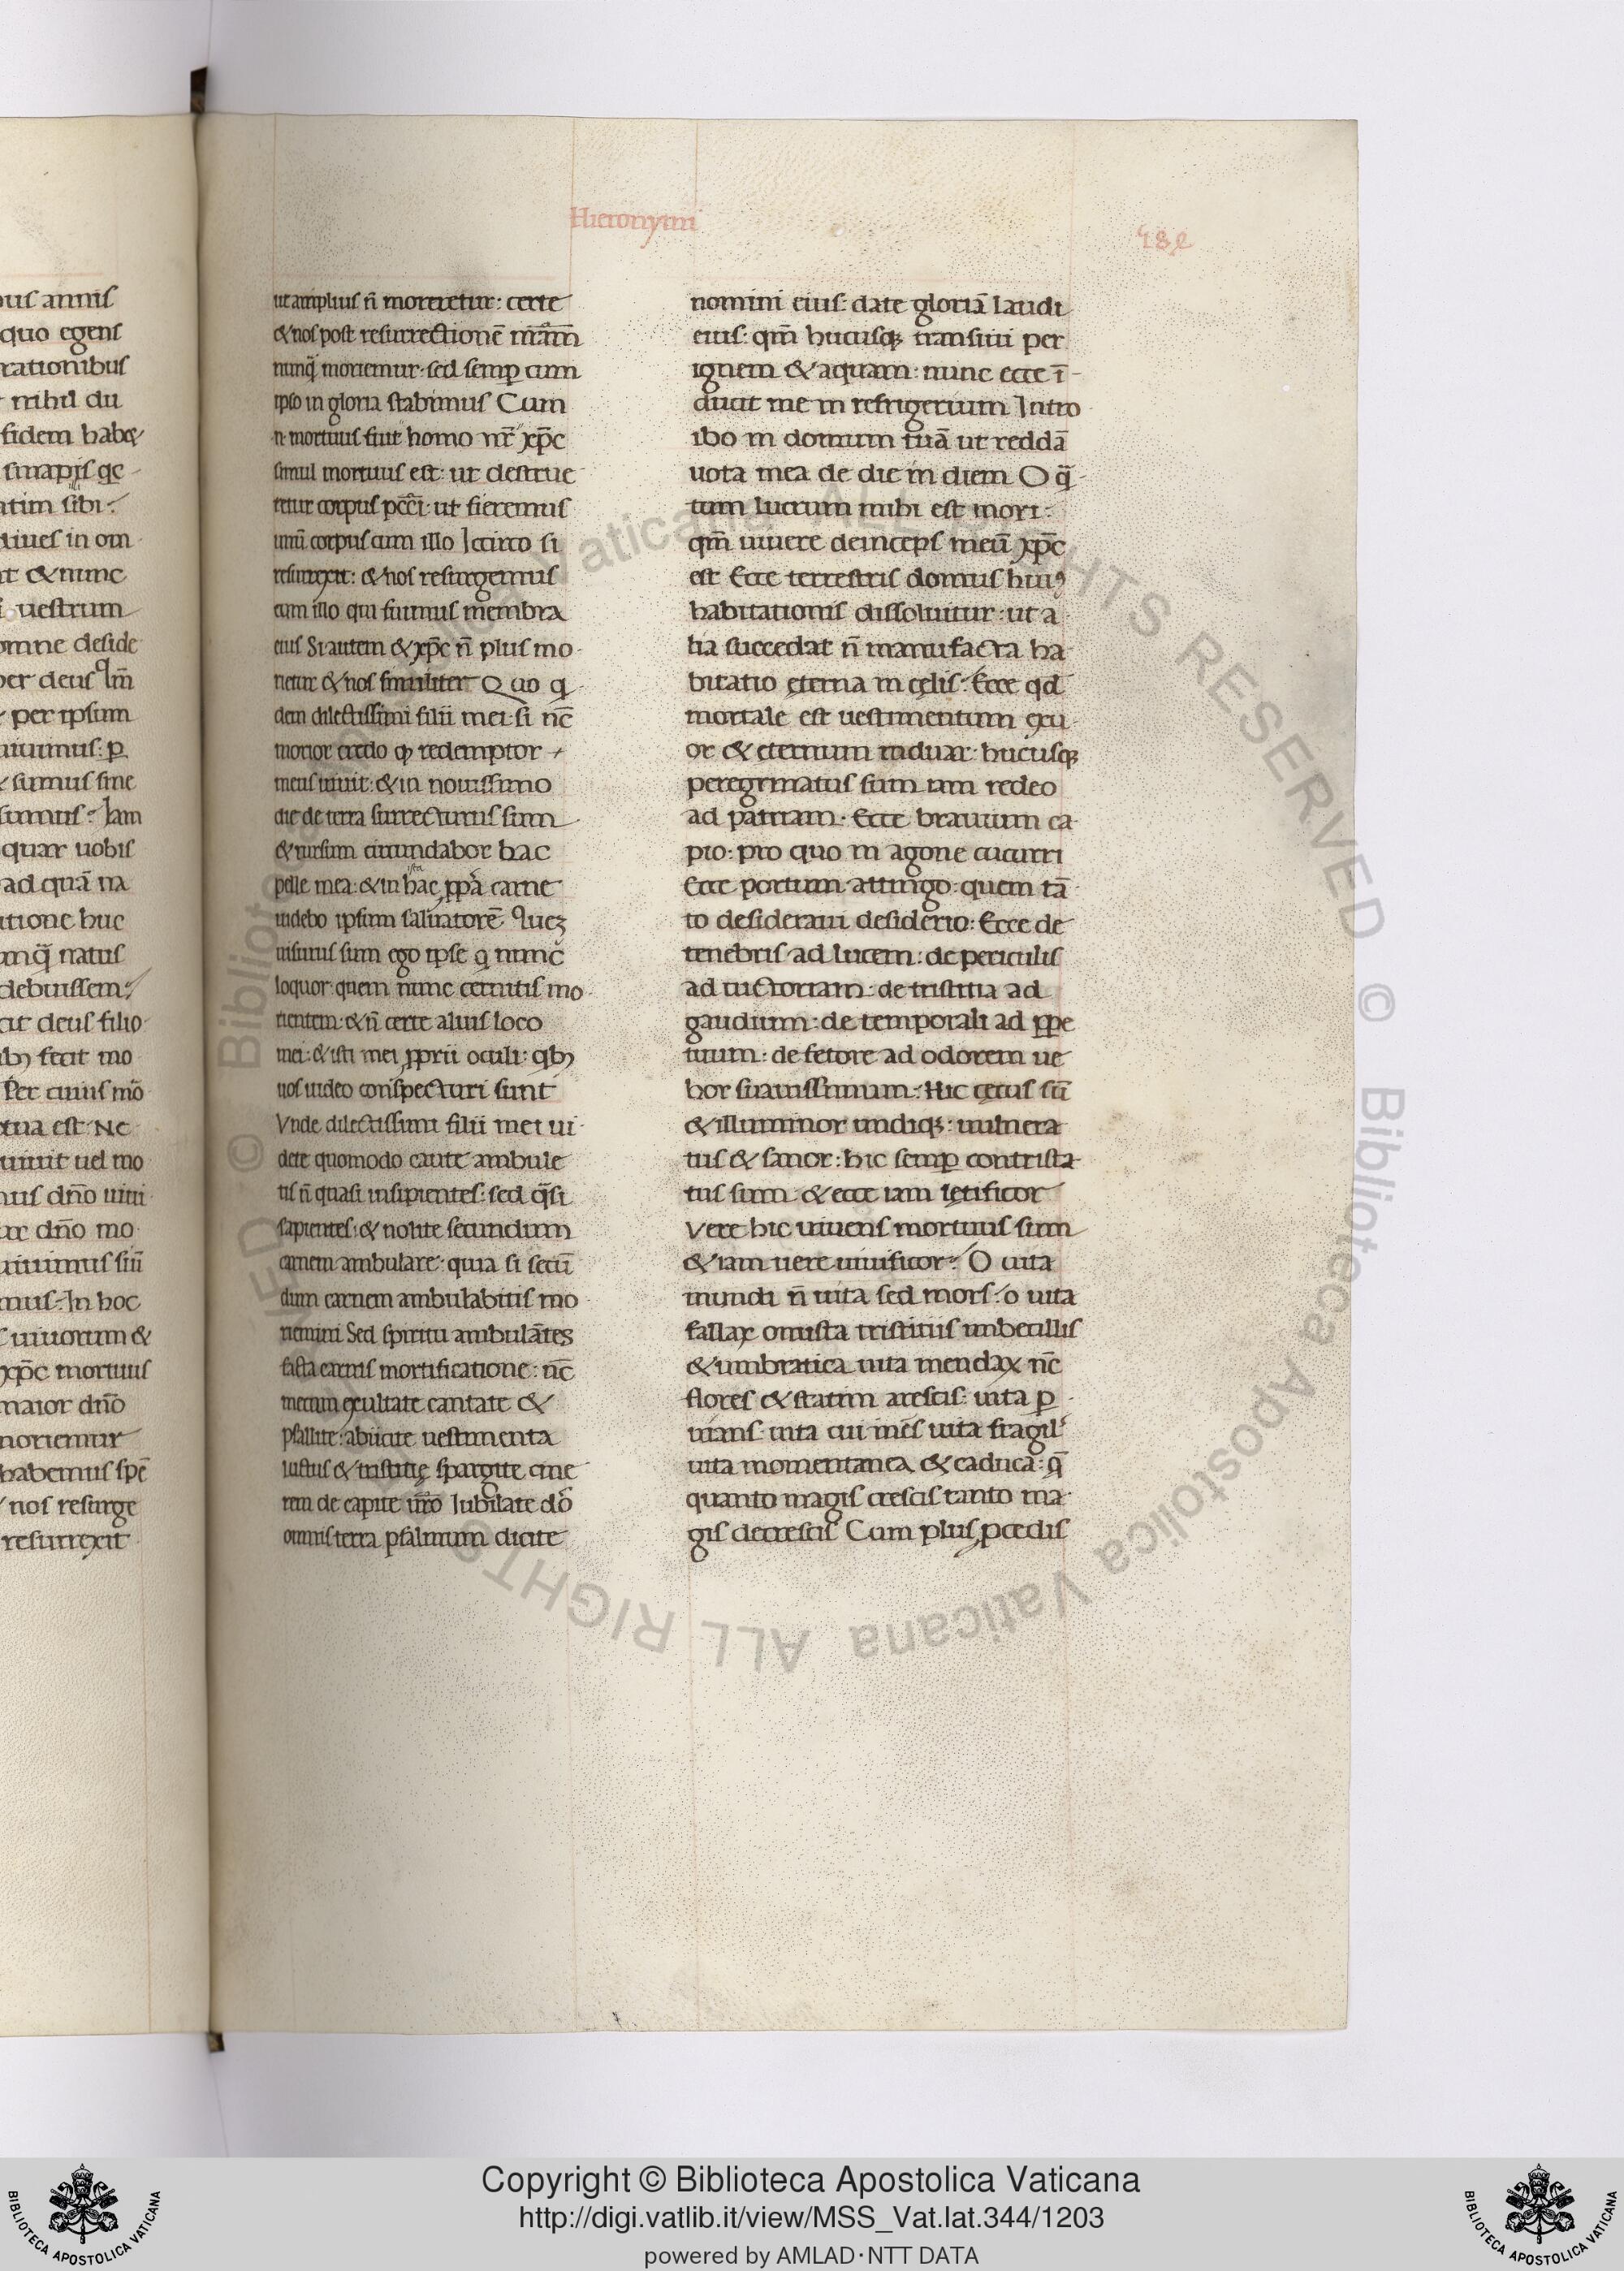 Hieronymi
ut amplius n̄ moreretur: certe
& nos post resurrectionē nr̄am̄
nunq̄ moriemur. sed semꝑ cum
ipso in gloria stabimus Cum
n. mortuus fuit homo nr̄ xp̄c
simul mortuus est: ut destrue
retur corpus pcc̄i: ut fieremus
unū corpus cum illo Iccirco si
resurrexit: & nos resurgemus
cum illo qui fuimus membra
eius Si autem & xp̄c n̄ plus mo
rietur & nos similiter Quo q
dem dilectissimi filii mei si nc̄
morior credo ꝙ redemptor
meus uiuit: & in nouissimo
die de terra surrecturus sum
& rursum circundabor hac
pelle mea: & in hac ista ꝓpa carne
uidebo ipsum saluatorē Queꝫ
uisurus sum ego ipse q nunc
loquor: quem nunc cernitis mo
rientem: & n̄ certe alius loco
mei: & isti mei ꝓprii oculi: qbꝰ
uos uideo conspecturi sunt
Vnde dilectissimi filii mei ui
dete quomodo caute ambule
tis n̄ quasi insipientes: sed q̄si
sapientes: & nolite secundum
carnem ambulare: quia si secū
dum carnem ambulabitis mo
riemini Sed spiritu ambulātes
facta carnis mortificatione: nc̄
mecum exultate cantate &
psallite: abiicite uestimenta
luctus & tristitię spargite cine
rem de capite ur̄o Iubilate dō
omnis terra psalmum dicite
nomini eius: date gloriā laudi
eius: qm̄ hucusqꝫ transiui per
ignem & aquam: nunc ecce ī
ducit me in refrigerium Intro
ibo in domum tuā ut reddā
uota mea de die in diem O q̄
tum lucrum mihi est mori:
qm̄ uiuere deinceps meū xp̄c
est Ecce terrestris domus huiꝰ
habitationis dissoluitur: ut a
lia succedat n̄ manufacta ha
bitatio ęterna in cęlis: Ecce qd
mortale est uestimentum exu
or & eternum induar: hucusqꝫ
peregrinatus sum iam redeo
ad patriam. Ecce brauium ca
pio: pro quo in agone cucurri
Ecce portum attingo: quem tā
to desideraui desiderio: Ecce de
tenebris ad lucem: de periculis
ad uictoriam: de tristitia ad
gaudium: de temporali ad ꝑpe
tuum: de fetore ad odorem ue
hor suauissimum: Hic cęcus sū
& illuminor undiqꝫ: uulnera
tus & sanor: hic semꝑ contrista
tus sum & ecce iam lętificor
Vere hic uiuens mortuus sum
& iam uere uiuificor: O uita
mundi n̄ uita sed mors: o uita
fallax onusta tristitiis imbecillis
& umbratica uita mendax nc̄
flores & statim arescis: uita p
uita cui inēs uita fragil'
uita momentanea & caduca: q̄
quanto magis crescis tanto ma
gis decrescis Cum plus ꝓcedis
Copyright © Biblioteca Apostolica Vaticana
http://digi.vatlib.it/view/MSS_Vat.lat.344/1203
powered by AMLAD·NTT DATA
BIBLIOTECA APOSTOLICA VATICANA
BIBLIOTECA APOSTOLICA VATICANA